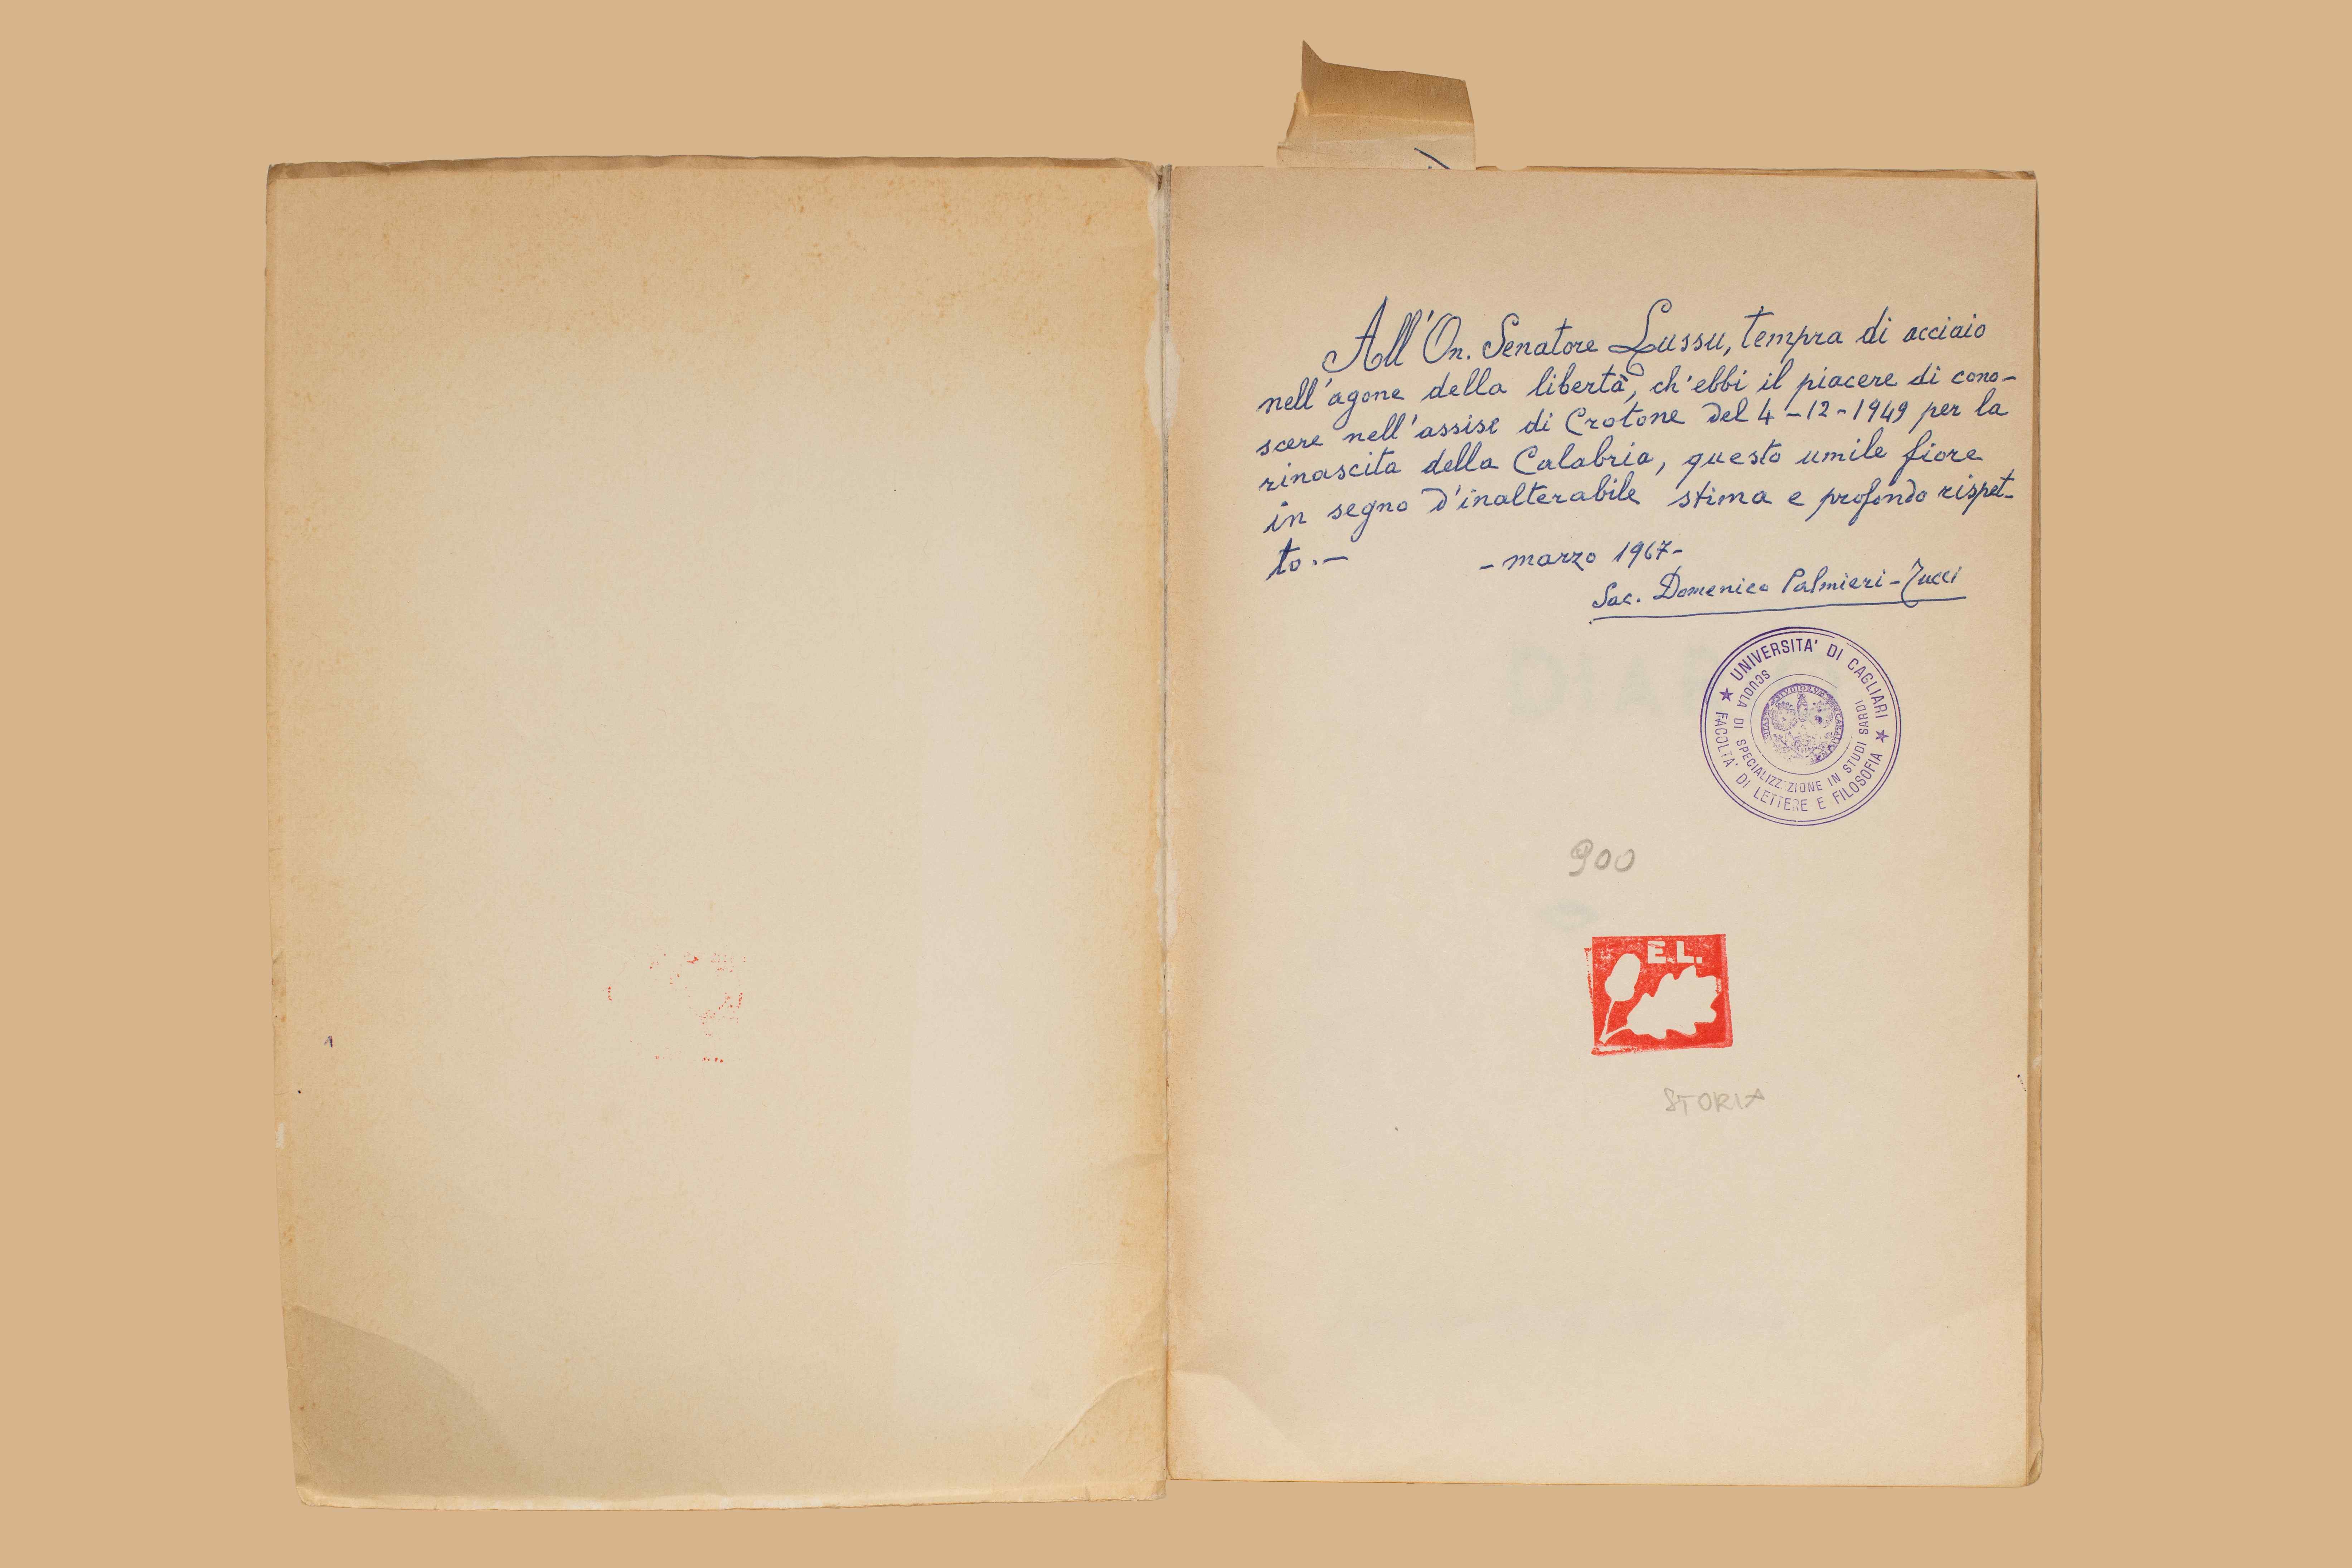 All'On. Senatore Lussu, tempra di acciaio
nell'agone della libertà, ch'ebbi il piacere di cono-
scere nell'assise di Crotone del 4-12-1949 per la
rinascita della Calabria, questo umile fiore
in segno d'inalterabile stima e profondo rispet-
to.-
- marzo 1967-
Sac. Domenico Palmieri-Zucci
★ UNIVERSITA' DI CAGLIARI ★
FACOLTA' DI LETTERE E FILOSOFIA
SCUOLA DI SPECIALIZZAZIONE IN STUDI SARDI
900
E.L.
STORIA